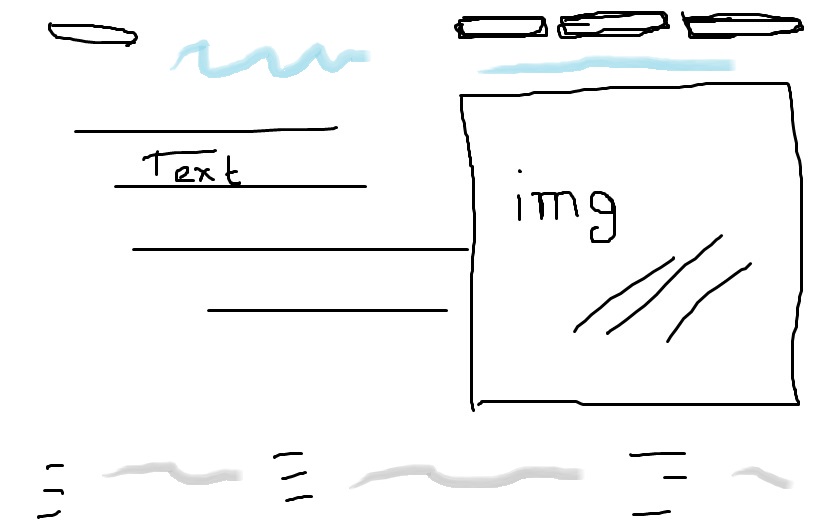 Text
img